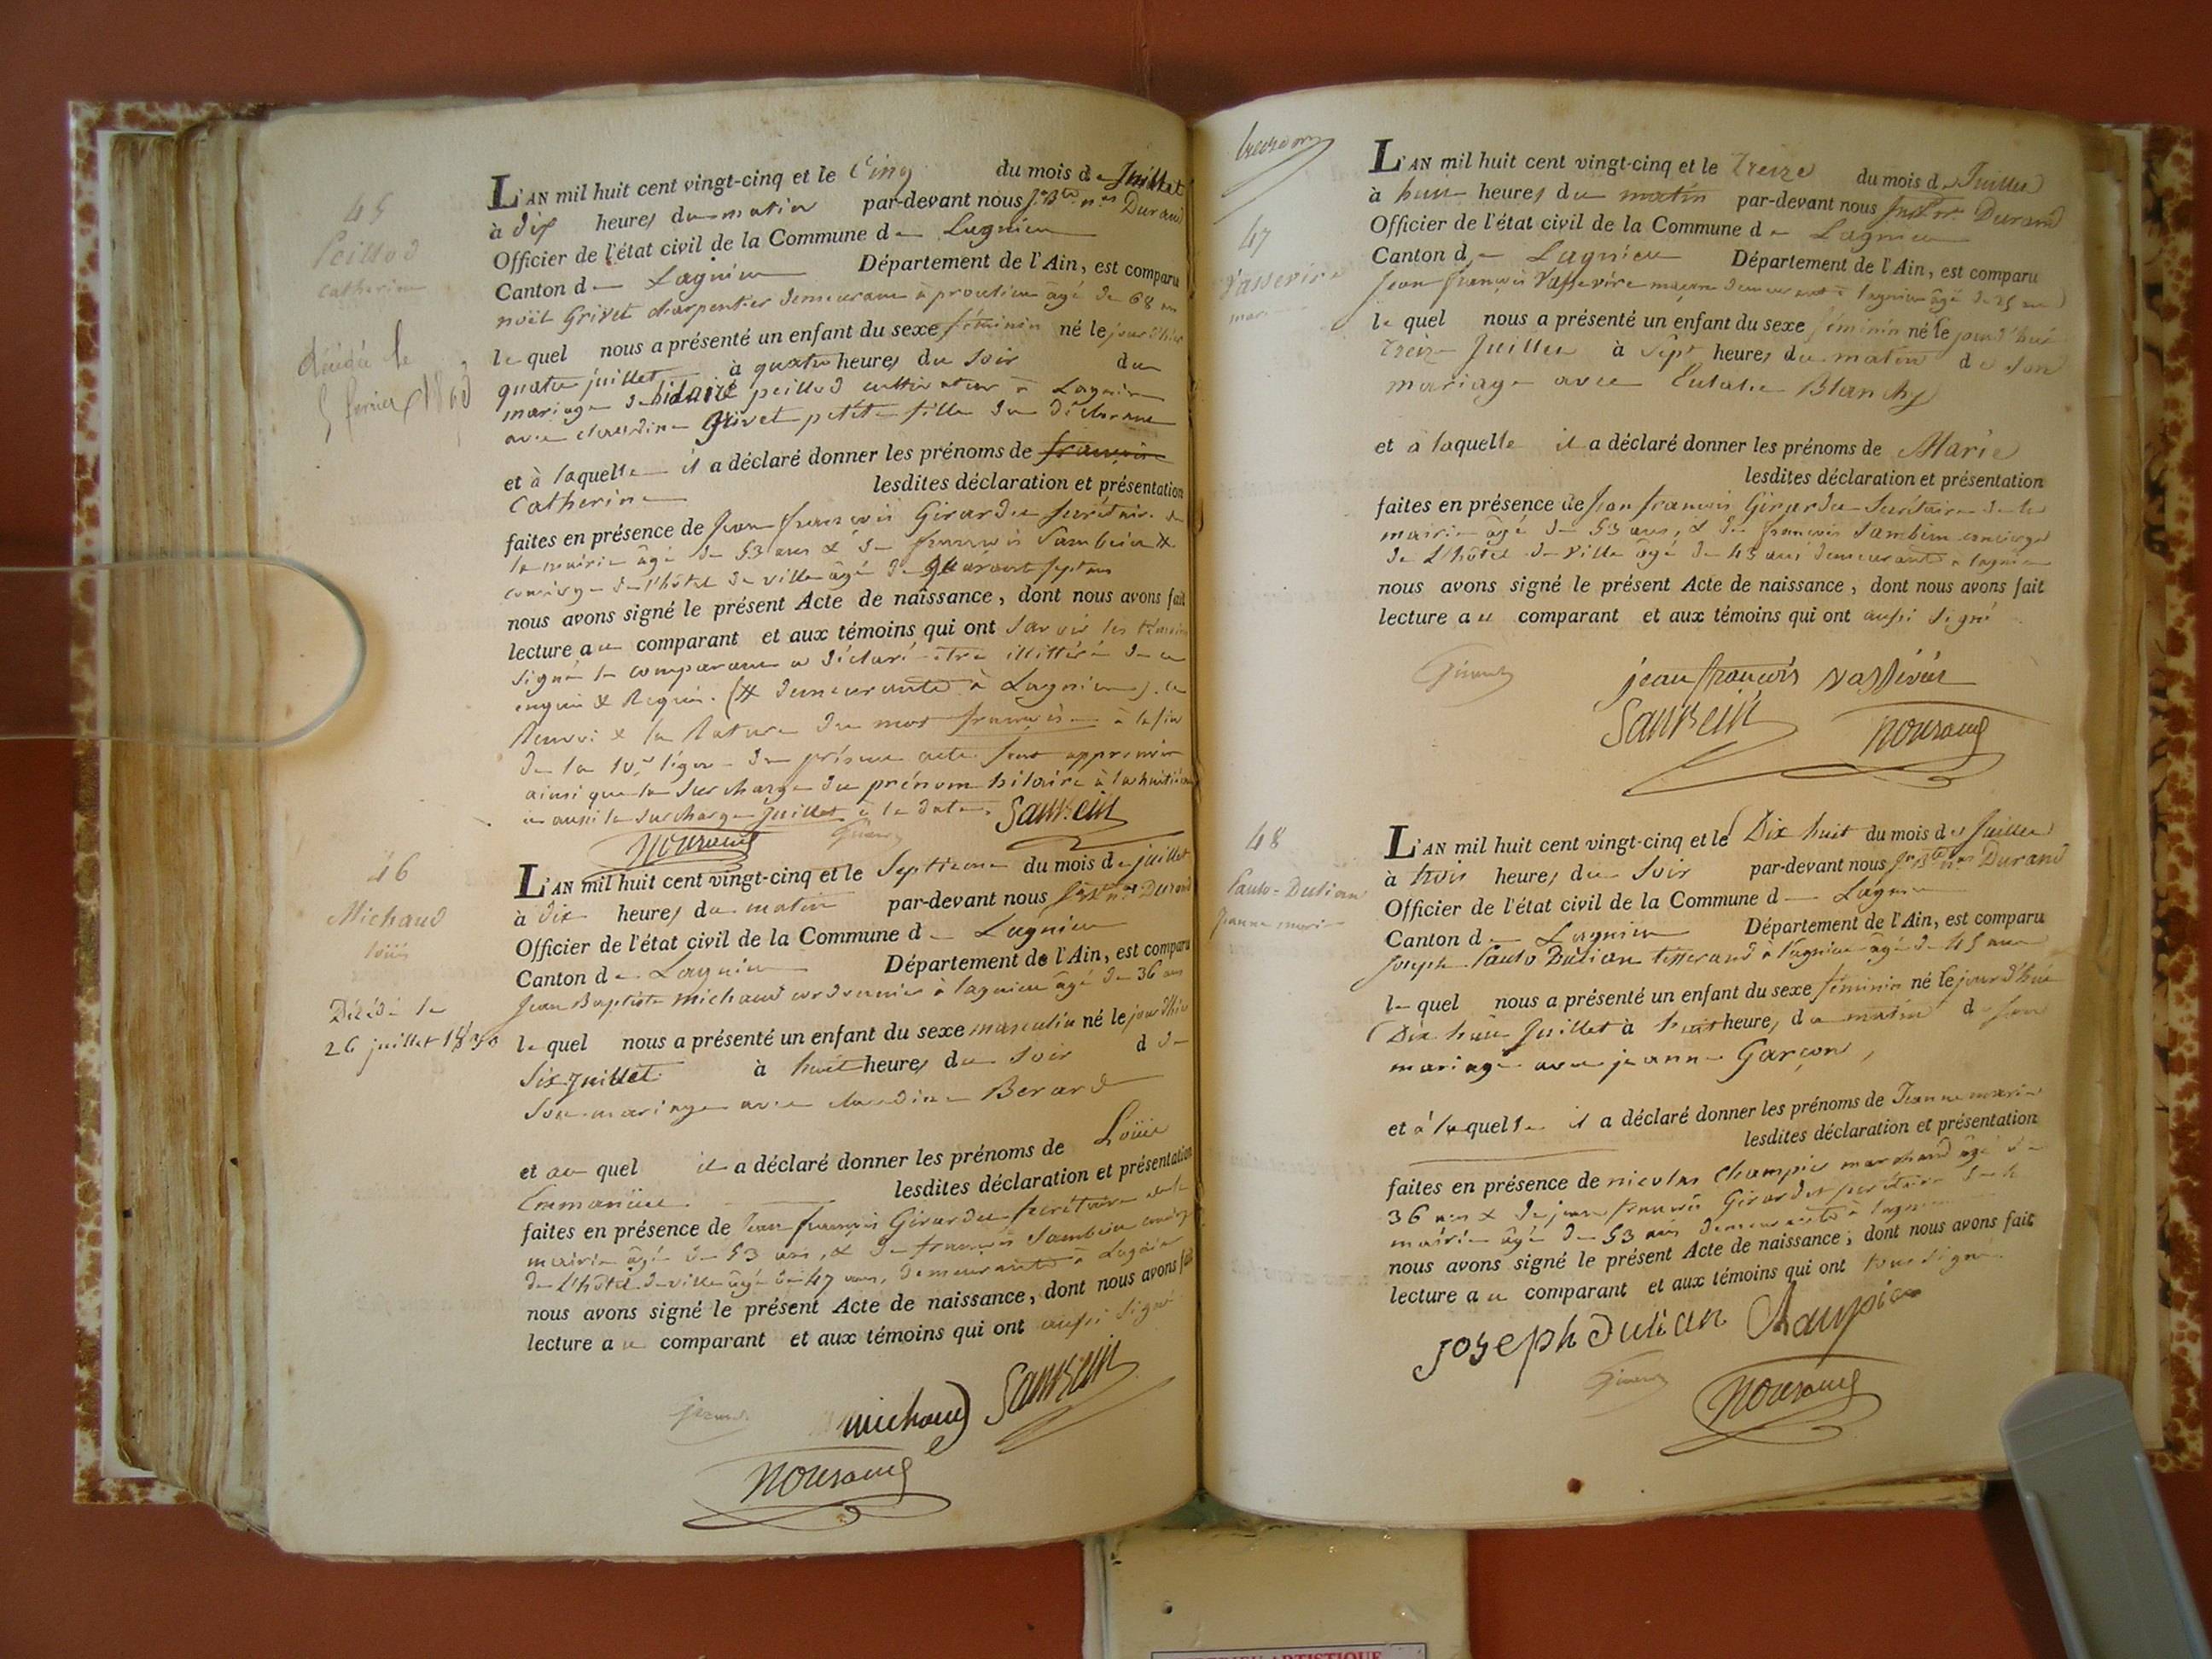 45
Peillod
Catherine
L'AN mil huit cent vingt-cinq et le Cinq du mois de Juillet
à dix heures du matin par-devant nous Durand
Officier de l'état civil de la Commune de Lagnieu
Canton de Lagnieu Département de l'Ain, est comparu
noël Grivet charpentier demeurant à proulieu âgé de 68 ans
lequel nous a présenté un enfant du sexe féminin né le jour d'hier
quatre juillet à quatre heures du soir du
mariage de hilaire peillod cultivateur à Lagnieu
avec claudine Grivet petite fille du déclarant
et à laquelle il a déclaré donner les prénoms de françoise
Catherine lesdites déclaration et présentation
faites en présence de Jean françois Girardet secrétaire de
la mairie âgé de 53 ans & de françois Sambein #
concierge de l'hôtel de ville âgé de quarante sept ans
nous avons signé le présent Acte de naissance, dont nous avons fait
lecture au comparant et aux témoins qui ont savoir les témoins
signé le comparant a déclaré être illittéré de ce
enquis & Requis. (# demeurants à Lagnieu). le
Renvoi & la Rature du mot françoise à la fin
de la 10e ligne du présent acte sont approuvés
ainsi que la surcharge du prénom hilaire à la huitième
et aussi la surcharge juillet à la date. Sambein
46
Michaud
loüis
Décédé le
26 juillet
L'AN mil huit cent vingt-cinq et le Septieme du mois de juillet
à dix heures du matin par-devant nous Durand
Officier de l'état civil de la Commune de Lagnieu
Canton de Lagnieu Département de l'Ain, est comparu
Jean Baptiste Michaud cordonnier à lagnieu âgé de 36 ans
lequel nous a présenté un enfant du sexe masculin né le jour d'hier
Six juillet à huit heures du soir d de
son mariage avec claudine Berard
et auquel il a déclaré donner les prénoms de Loüis
Emmanüel lesdites déclaration et présentation
faites en présence de Jean françois Girardet secrétaire de la
mairie âgé de 53 ans, & de françois Sambein concierge
de l'hôtel de ville âgé de 47 ans, demeurants à Lagnieu
nous avons signé le présent Acte de naissance, dont nous avons fait
lecture au comparant et aux témoins qui ont aussi signé
michaud Sambein
47
Vassevire
marie
L'AN mil huit cent vingt-cinq et le treize du mois de Juillet
à huit heures du matin par-devant nous Durand
Officier de l'état civil de la Commune de Lagnieu
Canton de Lagnieu Département de l'Ain, est comparu
Jean françois Vassevire maçon demeurant à lagnieu âgé de 25 ans
lequel nous a présenté un enfant du sexe féminin né le jourd'hui
treize Juillet à sept heures du matin de son
mariage avec Eulalie Blanchy
et à laquelle il a déclaré donner les prénoms de Marie
lesdites déclaration et présentation
faites en présence de Jean françois Girardet Secrétaire de la
mairie âgé de 53 ans, & de françois Sambein concierge
de L'hôtel de ville âgé de 45 ans demeurants à lagnieu
nous avons signé le présent Acte de naissance, dont nous avons fait
lecture au comparant et aux témoins qui ont aussi signé
jean françois vassivir
Sambein
48
Pauto-Dulian
Jeanne marie
L'AN mil huit cent vingt-cinq et le Dix huit du mois de Juillet
à trois heures du soir par-devant nous Durand
Officier de l'état civil de la Commune de Lagnieu
Canton de Lagnieu Département de l'Ain, est comparu
Joseph Pauto Dulian tisserand à lagnieu âgé de 45 ans
lequel nous a présenté un enfant du sexe féminin né le jourd'hui
Dix huit Juillet à huit heures du matin de son
mariage avec jeanne Garçon,
et à laquelle il a déclaré donner les prénoms de Jeanne marie
lesdites déclaration et présentation
faites en présence de nicolas Champié marchand âgé de
36 ans & de jean françois Girardet secrétaire de la
mairie âgé de 53 ans demeurants à lagnieu
nous avons signé le présent Acte de naissance; dont nous avons fait
lecture au comparant et aux témoins qui ont tous signé
Joseph dulian
ARTISTIQUE